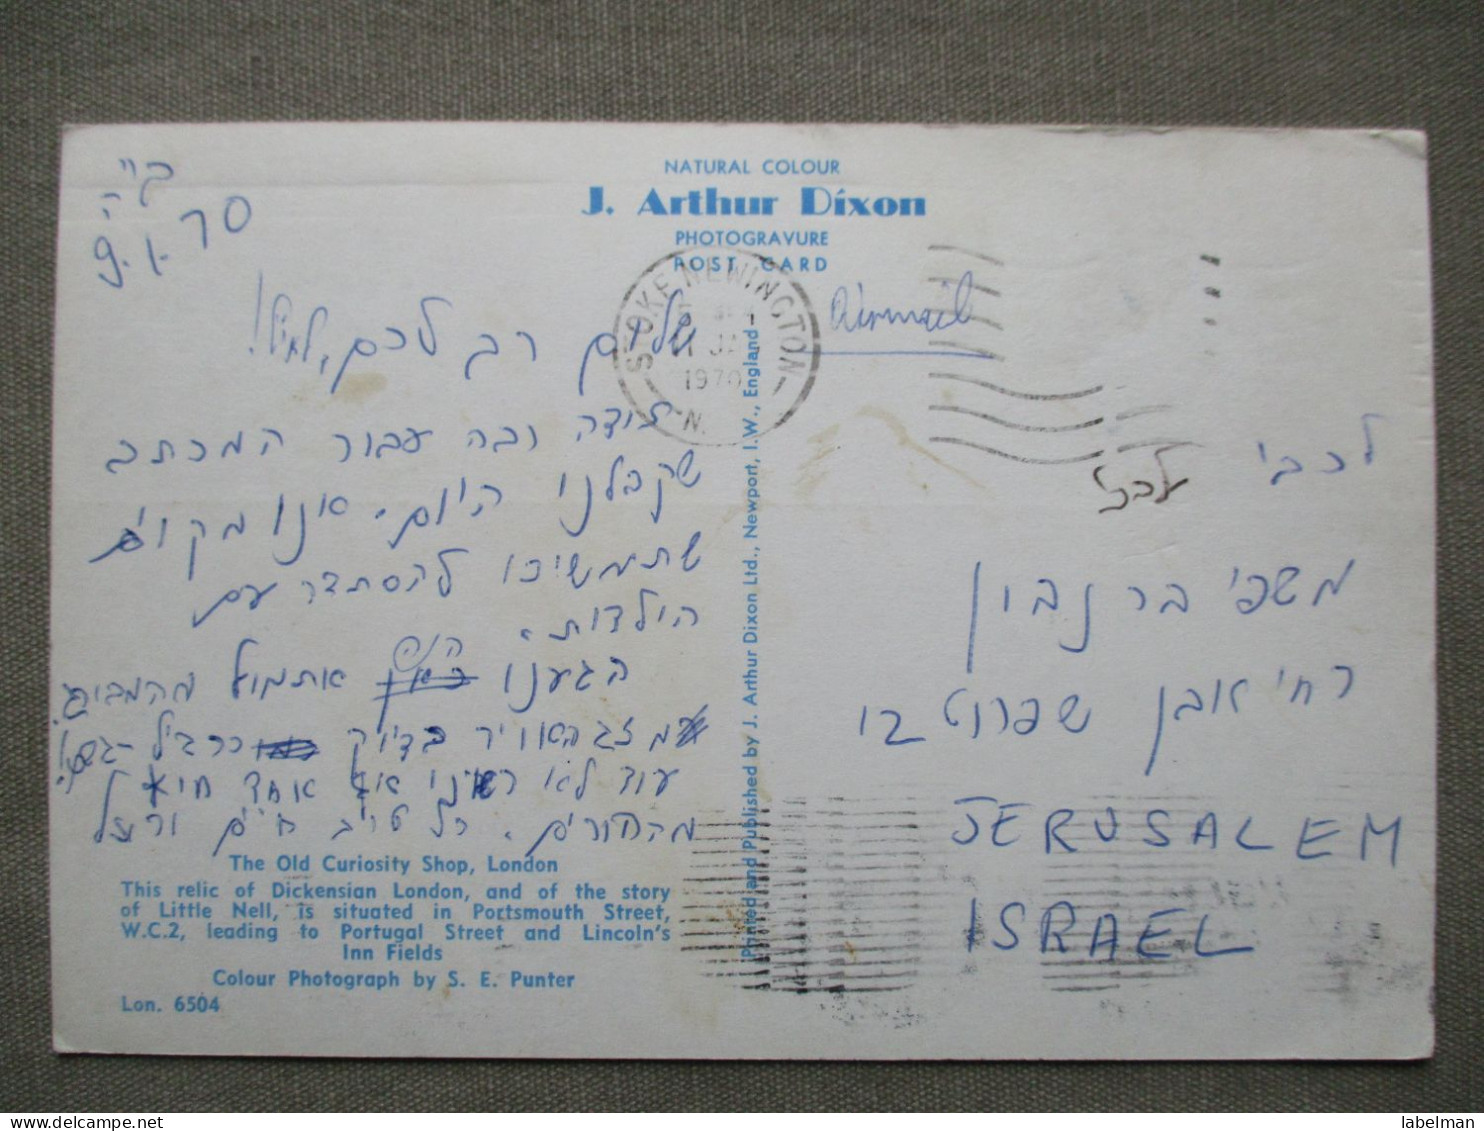 ב"ה
9.1.70
שלום רב לכם,
תודה רבה עבור המכתב
שקבלנו היום. אנו מקוים
שתמשיכו להסתדר עם
הילדות.
הנה
הגענו אתמול
מזג האויר בדיוק כרגיל
עוד לא ראינו אף אחד חוץ
מההורים. כל טוב
The Old Curiosity Shop, London
This relic of Dickensian London, and of the story
of Little Nell, is situated in Portsmouth Street,
W.C.2, leading to Portugal Street and Lincoln's
Inn Fields
Colour Photograph by S. E. Punter
Lon. 6504
NATURAL COLOUR
J. Arthur Dixon
PHOTOGRAVURE
POST CARD
STOKE NEWINGTON
11 JA
1970
N.
Printed and Published by J. Arthur Dixon Ltd., Newport, I.W., England
Airmail
לכבי
לכב'
משפ' בר נבון
רח' אבן שפרוט 12
JERUSALEM
ISRAEL
labelman